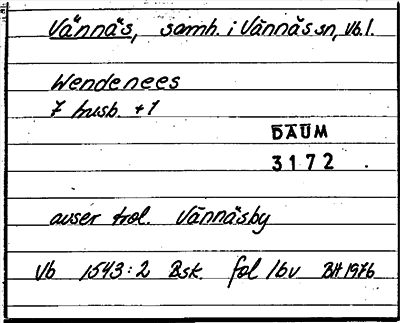 Vännäs, samh. i Vännäs sn, Vb.l.
Wendenees
7 husb. + 1
DAUM
3172.
avser trol. Vännäsby
Vb 1543:2 Bsk. fol 16v BH 1976